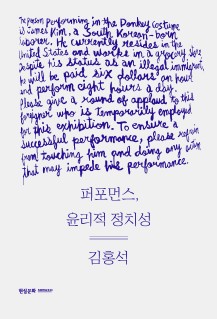 The person performing in the Donkey costume
is James Kim, a South Korean-born
laborer. He currently resides in the
United States and works in a grocery store.
Despite his status as an illegal immigrant,
he will be paid six dollars an hour
and perform eight hours a day.
Please give a round of applaud to this
foreigner who is temporarily employed
for this exhibition. To ensure a
successful performance, please refrain
from touching him and doing any action
that may impede his performance.
퍼포먼스,
윤리적 정치성
김홍석
현실문화